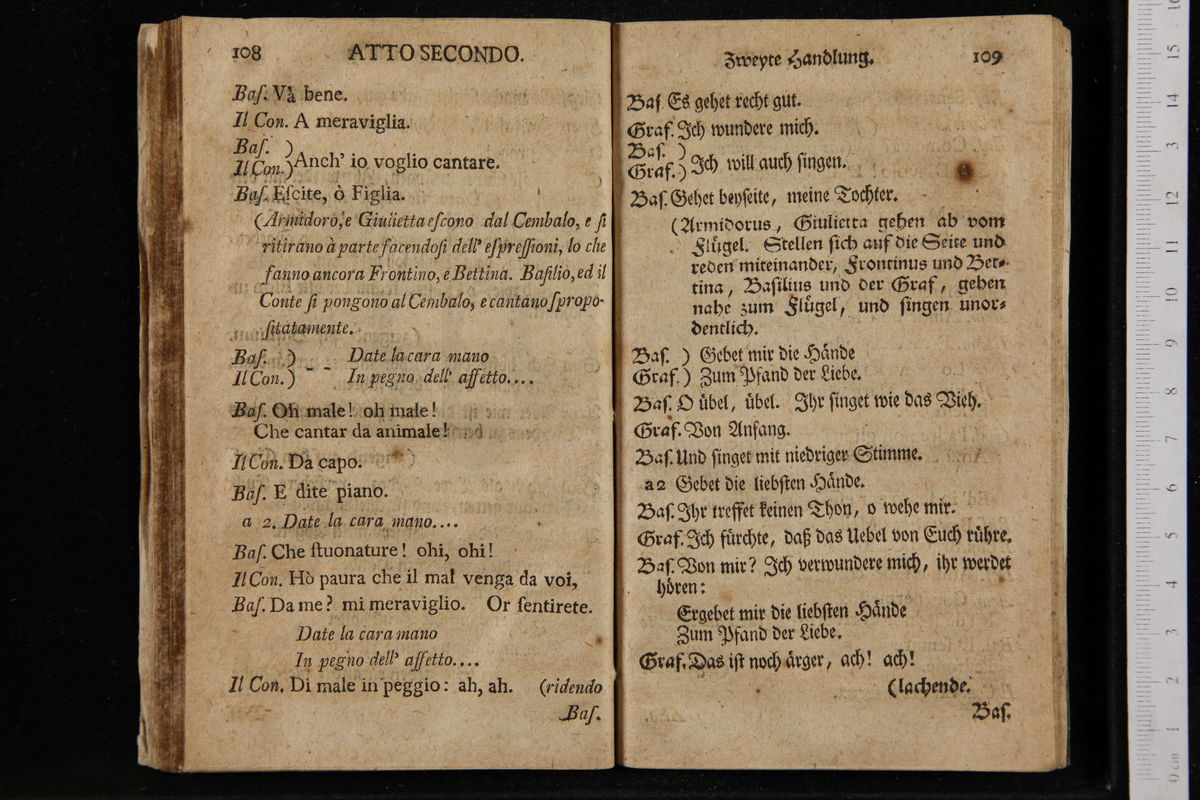 108 ATTO SECONDO.
Baſ. Và bene.
Il Con. A meraviglia.
Baſ. )
Il Con.) Anch' io voglio cantare.
Baſ. Eſcite, ò Figlia.
(Armidoro, e Giulietta eſcono dal Cembalo, e ſi
ritirano à parte facendoſi dell' eſpreſſioni, lo che
fanno ancora Frontino, e Bettina. Baſilio, ed il
Conte ſi pongono al Cembalo, e cantano ſpropo-
ſitatamente.
Baſ. ) Date la cara mano
Il Con.) - - In pegno dell' affetto....
Baſ. Oh male! oh male!
Che cantar da animale!
Il Con. Da capo.
Baſ. E dite piano.
a 2. Date la cara mano....
Baſ. Che ſtuonature! ohi, ohi!
Il Con. Hò paura che il mal venga da voi,
Baſ. Da me? mi meraviglio. Or ſentirete.
Date la cara mano
In pegno dell' affetto....
Il Con. Di male in peggio: ah, ah. (ridendo
Baſ.
Zweyte Handlung. 109
Baſ. Es gehet recht gut.
Graf. Ich wundere mich.
Baſ. )
Graf.) Ich will auch ſingen.
Baſ. Gehet beyſeite, meine Tochter.
(Armidorus, Giulietta gehen ab vom
Flügel. Stellen ſich auf die Seite und
reden miteinander, Frontinus und Bet-
tina, Baſilius und der Graf, gehen
nahe zum Flügel, und ſingen unor-
dentlich.
Baſ. ) Gebet mir die Hände
Graf.) Zum Pfand der Liebe.
Baſ. O übel, übel. Ihr ſinget wie das Vieh.
Graf. Von Anfang.
Baſ. Und ſinget mit niedriger Stimme.
a 2 Gebet die liebſten Hände.
Baſ. Ihr treffet keinen Thon, o wehe mir.
Graf. Ich fürchte, daß das Uebel von Euch rühre.
Baſ. Von mir? Ich verwundere mich, ihr werdet
hören:
Ergebet mir die liebſten Hände
Zum Pfand der Liebe.
Graf. Das iſt noch ärger, ach! ach!
(lachende.
Baſ.
0 cm 1 2 3 4 5 6 7 8 9 10 11 12 13 14 15 16